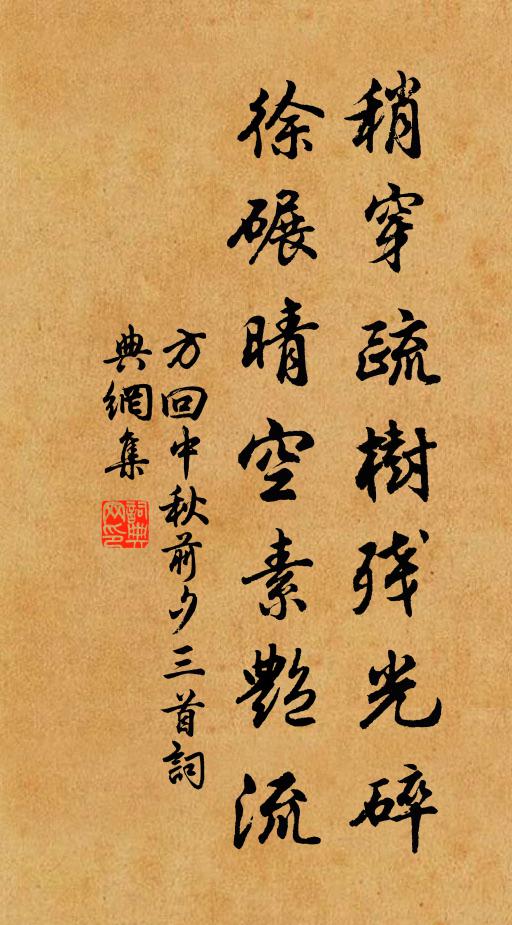 稍穿疏樹残光碎
徐碾晴空素艷流
方回中秋前夕三首詞
典網集
詞典网印